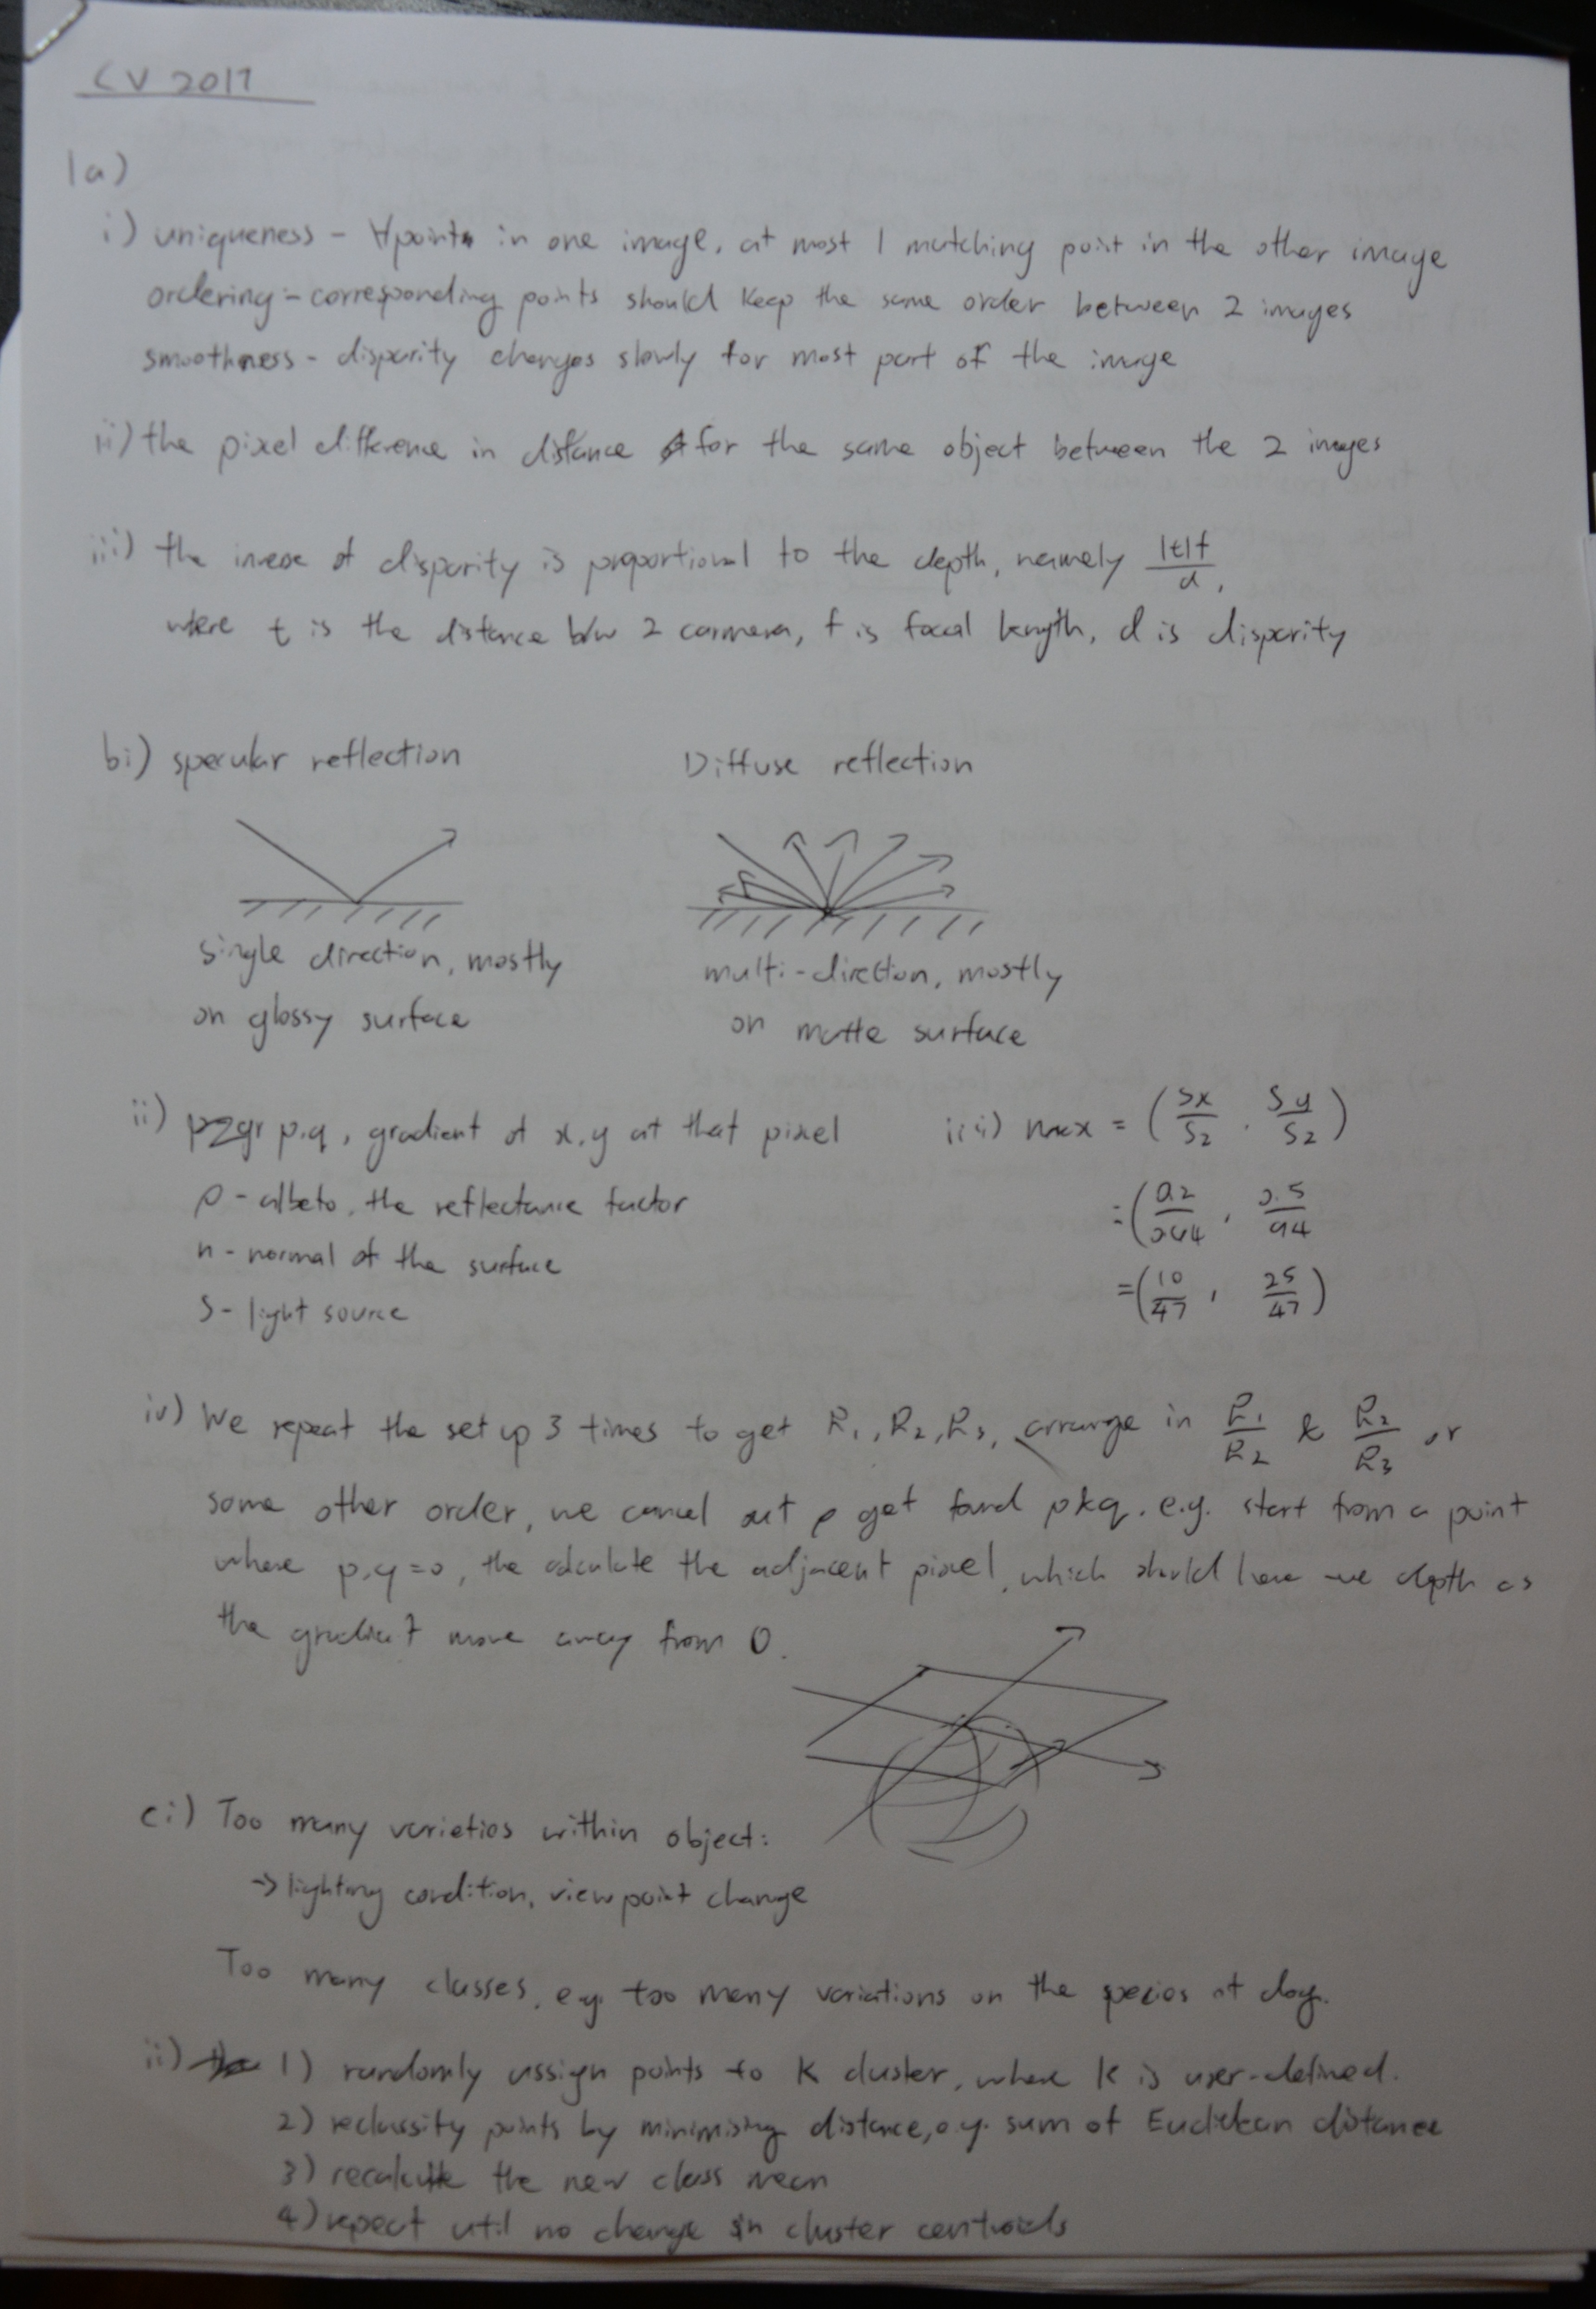 CV 2017
1a)
i) uniqueness - ∀points in one image, at most 1 matching point in the other image
ordering - corresponding points should keep the same order between 2 images
smoothness - disparity changes slowly for most part of the image
ii) the pixel difference in distance for the same object between the 2 images
iii) the inverse of disparity is proportional to the depth, namely |t|f/d,
where t is the distance b/w 2 carmera, f is focal length, d is disparity
bi) specular reflection Diffuse reflection
single direction, mostly multi-direction, mostly
on glossy surface on matte surface
ii) p,q, gradient of x,y at that pixel iii) max = (Sx/Sz, Sy/Sz)
ρ - albeto, the reflectance factor = (0.2/0.94, 0.5/94
n - normal of the surface = (10/47, 25/47)
S - light source
iv) We repeat the set up 3 times to get R1, R2, R3, arrange in R1/R2 & R2/R3 or
some other order, we cancel out ρ get found p&q. e.g. start from a point
where p,q=0, the calculate the adjacent pixel, which should have -ve depth as
the gradient move away from 0.
ci) Too many varieties within object:
→ lighting condition, viewpoint change
Too many classes, e.g. too many variations on the species of dog.
ii) 1) randomly assign points to K cluster, where K is user-defined.
2) reclassify points by minimising distance, e.g. sum of Euclidean distance
3) recalculate the new class mean
4) repeat until no change in cluster centroids